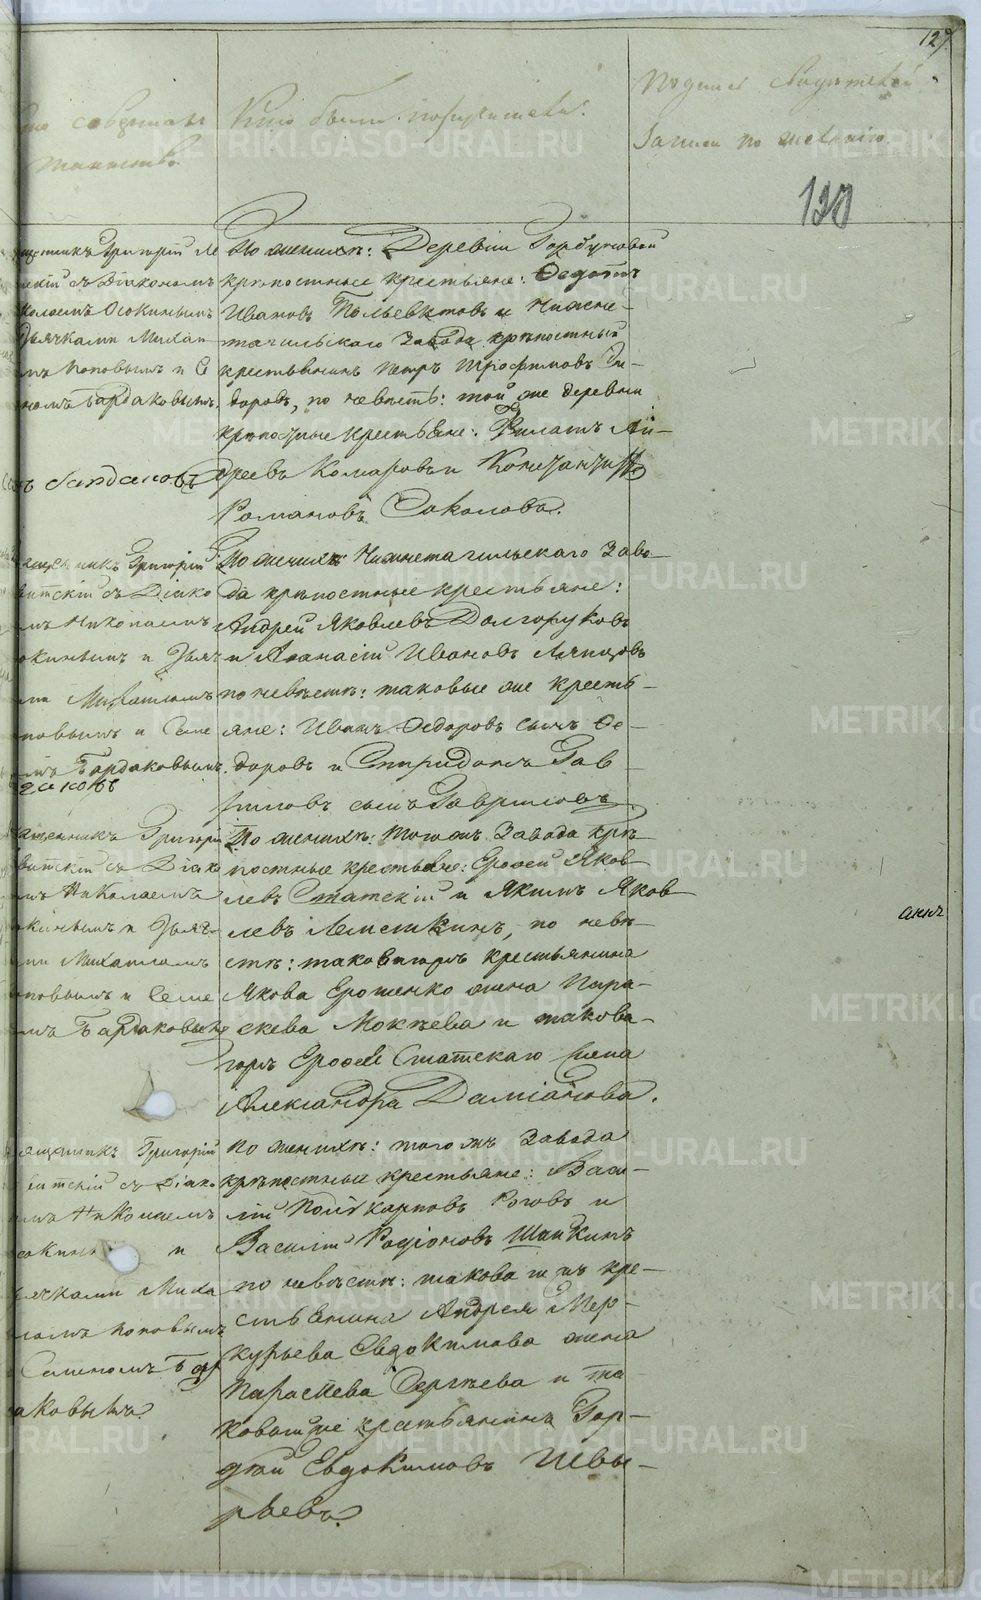 127.
Кто совершалъ
таинство.
Кто были поручители.
Подпись свидѣтелей
записи по желанію.
130
Григорій
скій съ Діакономъ
колаемъ Осокинымъ
Дьячками Михаи
мъ Поповымъ и С
номъ Бардаковымъ.
По женихѣ: Деревни Горбуновой
крѣпостные крестьяне: Ѳедотъ
Ивановъ Польевктовъ и Нижне-
тагильскаго Завода крѣпостный
крестьянинъ Петръ Трофимовъ Си-
доровъ, по невѣстѣ: той же деревни
крѣпостные крестьяне: Филатъ Ан-
дреевъ Комаровъ и Констанчинъ
Романовъ Соколовъ.
Григорій
витскій съ Діако
мъ Николаемъ
окинымъ и Дьяч
ми Михаиломъ
повымъ и Семе
мъ Бардаковымъ.
По женихѣ: Нижнетагильскаго Заво-
да крѣпостные крестьяне:
Андрей Яковлевъ Долгоруковъ
и Аѳанасій Ивановъ Ляпцовъ
по невѣстѣ: таковые же кресть-
яне: Иванъ Ѳедоровъ сынъ Ѳе-
доровъ и Спиридонъ Гав
риловъ сынъ Гавриловъ.
ященникъ Григорій
витскій съ Діако
мъ Николаемъ
кинымъ и Дьяч-
ми Михаиломъ
повымъ и Семе
мъ Бардаковымъ
По женихѣ: того жъ Завода крѣ-
постные крестьяне: Ероѳей Яков-
левъ Статскій и Якимъ Яков
левъ Лепсткинъ, по невѣ-
стѣ: таковагожъ крестьянина
Якова Ерошенко жена Пара-
скева Мокѣева и такова-
гожъ Ероѳея Статскаго жена
Александра Даміанова.
анъ
ященникъ Григорій
витскій съ Діако
мъ Николаемъ
сокин и
ьячками Миха
ломъ Поповымъ
Семеномъ Бард
аковымъ.
По женихѣ: того жъ Завода
крѣпостные крестьяне: Васи-
лій Поликарповъ Роговъ и
Василій Родіоновъ Шапкинъ
по невѣстѣ: таковаго жъ кре-
стьянина Андрея Мер-
курьева Евдокимова жена
Параскева Сергѣева и та-
ковой же крестьянинъ Гор-
дѣй Евдокимовъ Швы-
рьевъ.
METRIKI.GASO-URAL.RU